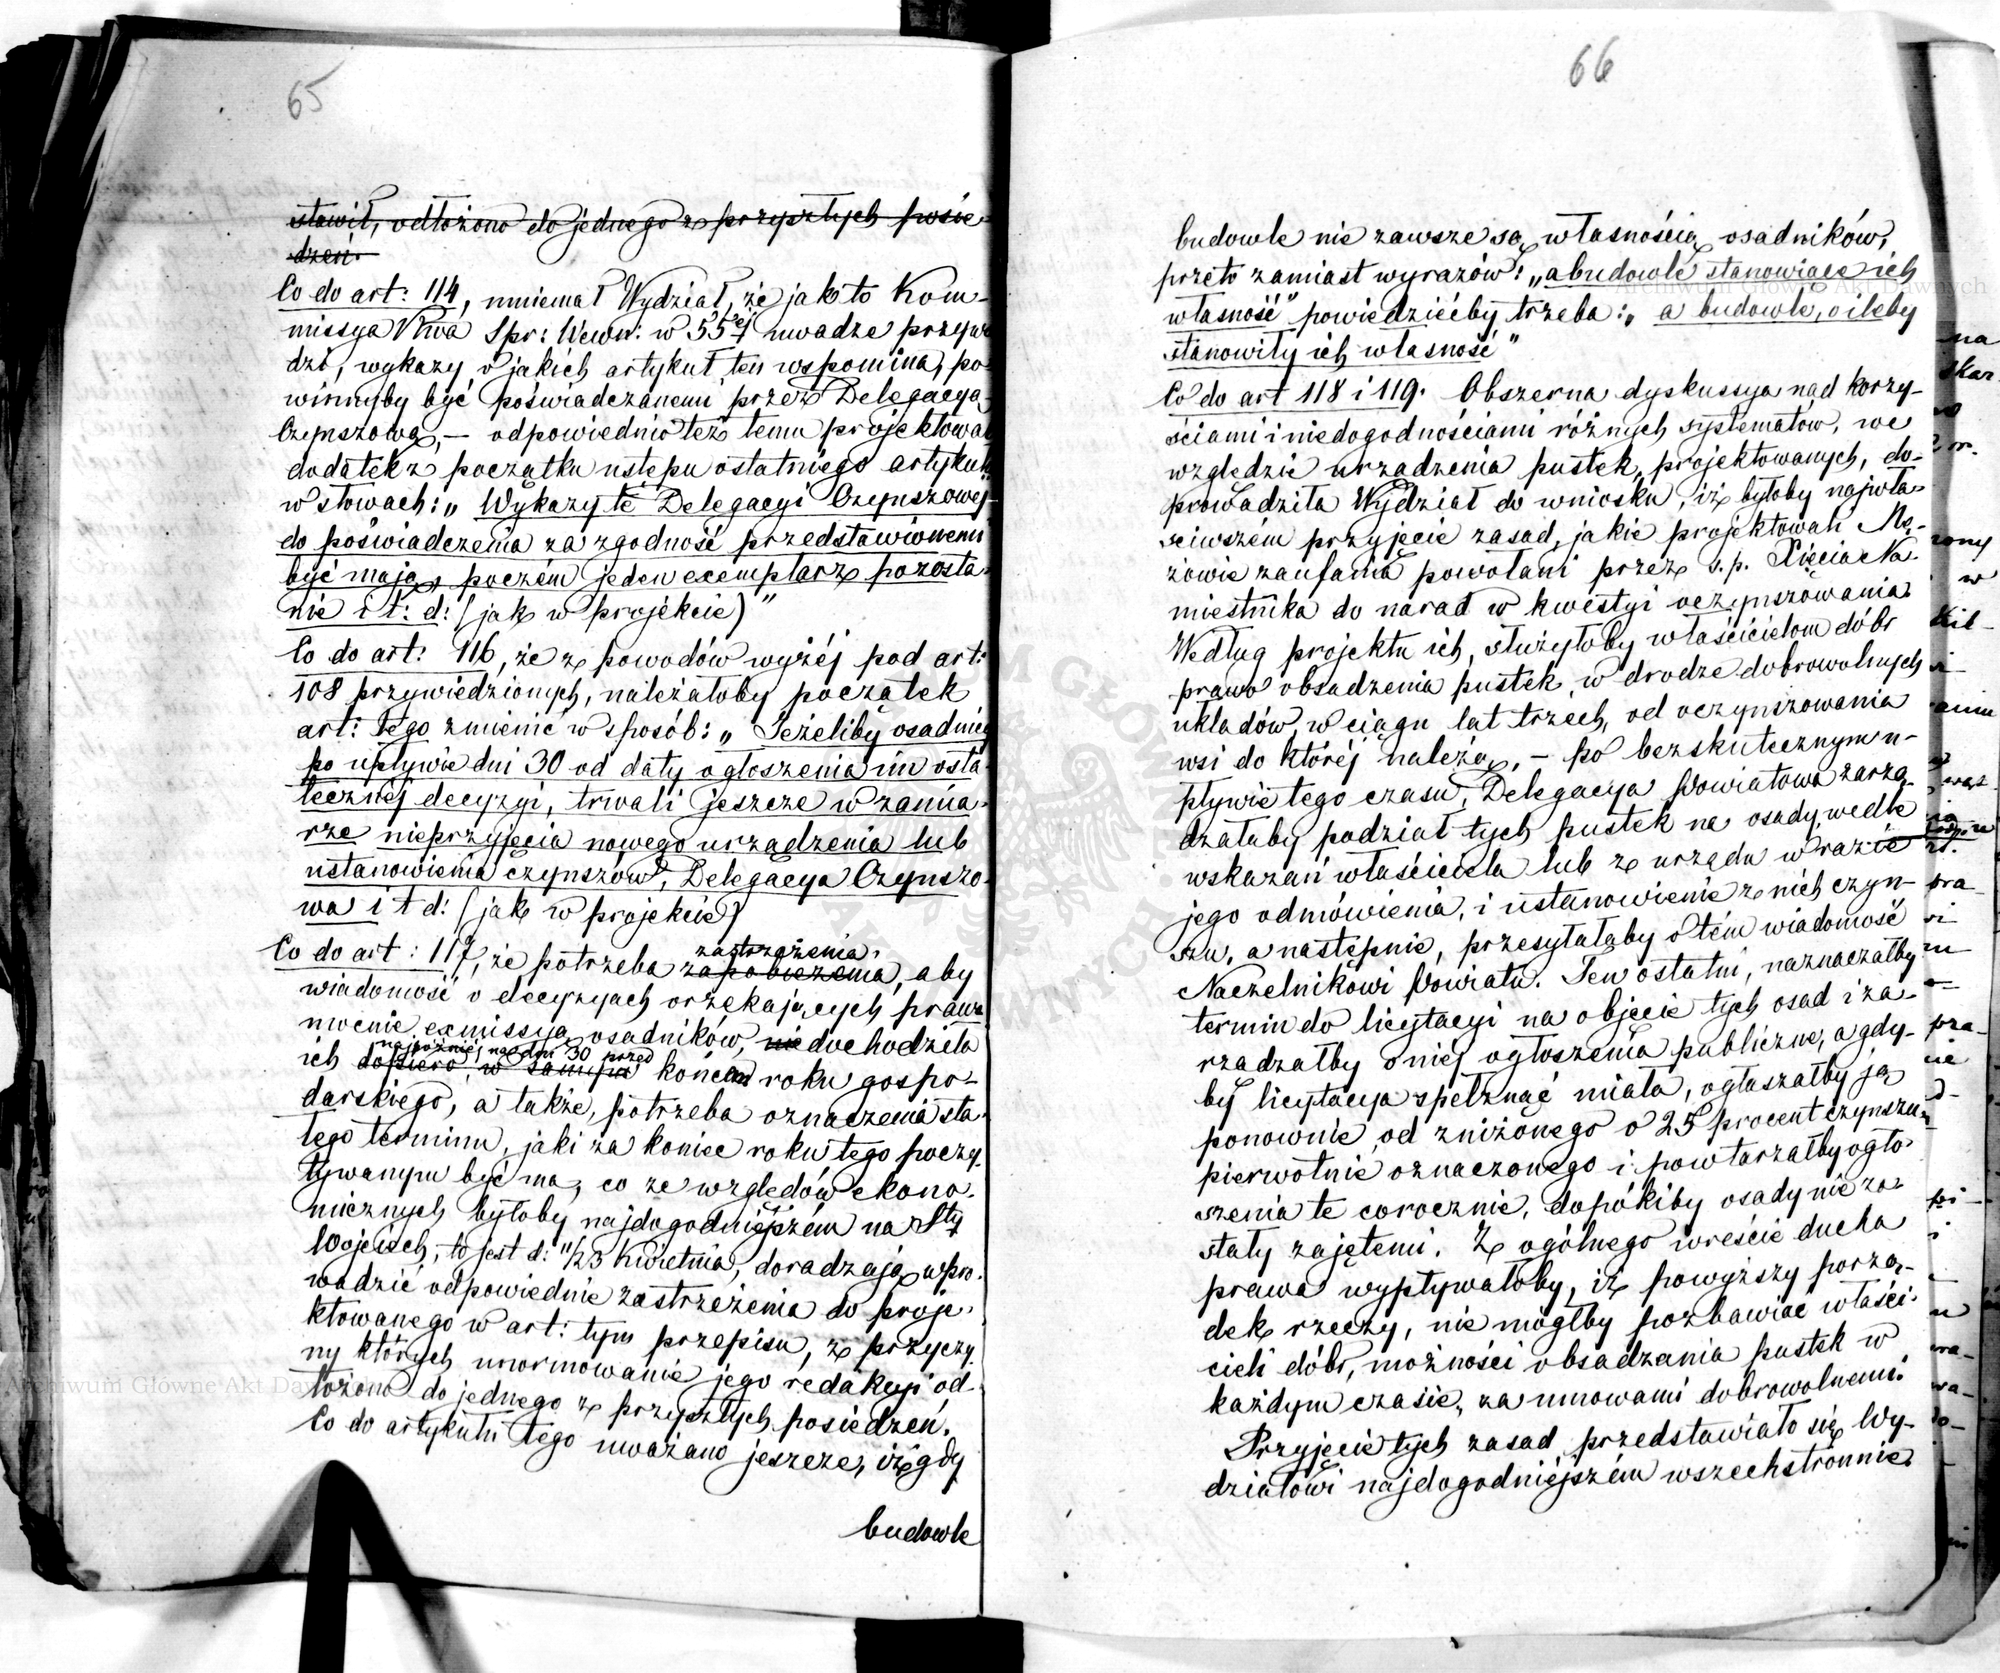 65
stawił, odłożono do jednego z przyszłych posie-
dzeń.
Co do art: 114, mniemał Wydział, że jak to Kom-
missya Rwa Spr: Wewn: w 55tej uwadze przywo
dzi, wykazy, o jakich artykuł ten wspomina, po-
winnyby być poświadczanemi przez Delegacyą
Czynszową, — odpowiednio też temu projektował
dodatek z początku ustępu ostatniego artykułu
w słowach: „Wykazy te Delegacyi Czynszowej
do poświadczenia za zgodność przedstawionemi
być mają, poczém jeden exemplarz pozosta-
nie i t: d: (jak w projekcie)"
Co do art: 116, że z powodów wyżéj pod art:
108 przywiedzionych, należałoby początek
art: tego zmienić w sposób: „Jeżeliby osadnicy
po upływie dni 30 od daty ogłoszenia im osta-
tecznéj decyzyi, trwali jeszcze w zamia-
rze nieprzyjęcia nowego urządzenia lub
ustanowienia czynszów, Delegacya Czynszo-
wa i t d: (jak w projekcie)
zastrzeżenia,
Co do art: 117, że potrzeba zapobieżenia, aby
wiadomość o decyzyach orzekających prawo
mocnie exmissyą osadników, nie dochodziła
najpóźniéj na dni 30 przed
ich dopiero, w samym końcem roku gospo-
darskiego, a także, potrzeba oznaczenia sta-
łego terminu, jaki za koniec roku tego poczy-
tywanym być ma, co ze względów ekono-
micznych byłoby najdogodniejszém na Sty
Wojciech, to jest d: 11/23 Kwietnia, doradzają wpro-
wadzić odpowiednie zastrzeżenia do proje-
ktowanego w art: tym przepisu, z przyczy-
ny których unormowanie jego redakcyi od-
łożono do jednego z przyszłych posiedzeń.
Co do artykułu tego uważano jeszcze, iż gdy
budowle
66
budowle nie zawsze są własnością osadników,
przeto zamiast wyrazów: „a budowle stanowiące ich
własność" powiedziećby trzeba: „a budowle, o ileby
stanowiły ich własność"
Co do art 118 i 119. Obszerna dyskussya nad korzy-
ściami i niedogodnościami różnych systematów, we
względzie urządzenia pustek, projektowanych, do-
prowadziła Wydział do wniosku, iż byłoby najwła-
ściwszém przyjęcie zasad, jakie projektowali Mę-
żowie zaufania powołani przez ś.p. Xięcia Na-
miestnika do narad w kwestyi oczynszowania.
Według projektu ich, służyłoby właścicielom dóbr
prawo obsadzenia pustek, w drodze dobrowolnych
układów, w ciągu lat trzech, od oczynszowania
wsi do któréj należą, — po bezskutecznym u-
pływie tego czasu, Delegacya Powiatowa zarzą-
dzałaby podział tych pustek na osady, wedle
wskazań właściciela lub z urzędu w razie
jego odmówienia, i ustanowienie z nich czyn-
szu, a następnie, przesyłałaby o tém wiadomość
Naczelnikowi Powiatu. Ten ostatni, naznaczałby
termin do licytacyi na objęcie tych osad i za-
rządzałby o niéj ogłoszenia publiczne, a gdy-
by licytacya spełznąć miała, ogłaszałby ją
ponownie od zniżonego o 25 procent czynszu
pierwotnie oznaczonego i powtarzałby ogło-
szenia te corocznie, dopókiby osady nie zo-
stały zajętemi. Z ogólnego wreście ducha
prawa wypływałoby, iż powyższy porzą-
dek rzeczy, nie mógłby pozbawiać właści-
cieli dóbr, możności obsadzania pustek w
każdym czasie, za umowami dobrowolnemi.
Przyjęcie tych zasad przedstawiało się Wy-
działowi najdogodniejszém wszechstronnie.
Archiwum Główne Akt Dawnych
Archiwum Główne Akt Dawnych